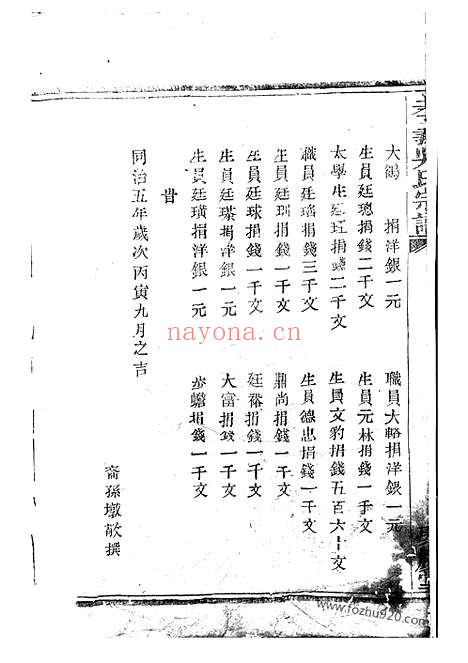 大鶴　捐洋銀一元
職員大輅捐洋銀一元
生員廷璁捐錢二千文
生員元林捐錢一千文
太學生廷　捐錢二千文
生員文豹捐錢五百六十文
職員廷璠捐錢三千文
生員德忠捐錢一千文
生員廷　捐錢一千文
鼎尚捐錢一千文
生員廷球捐錢一千文
廷裕捐錢一千文
生員廷瑹捐洋銀一元
大富捐錢一千文
生員廷璜捐洋銀一元
步蟾捐錢一千文
旹
同治五年歲次丙寅九月之吉
裔孫墩敬撰
nayona.cn
www.fozhu920.com